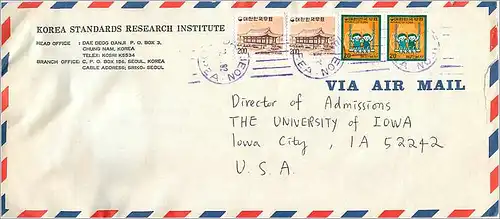 KOREA STANDARDS RESEARCH INSTITUTE
HEAD OFFICE : DAE DEOG DANJI P. O. BOX 3,
CHUNG NAM, KOREA
TELEX: KOSRI K5534
BRANCH OFFICE: C. P. O. BOX 156, SEOUL, KOREA
CABLE ADDRESS; SRIKO-SEOUL
대한민국우표 대한민국우표 대한민국우표 대한민국우표
200 200 20 20
VIA AIR MAIL
Director of Admissions
THE UNIVERSITY of IOWA
Iowa City, IA 52242
U. S. A.